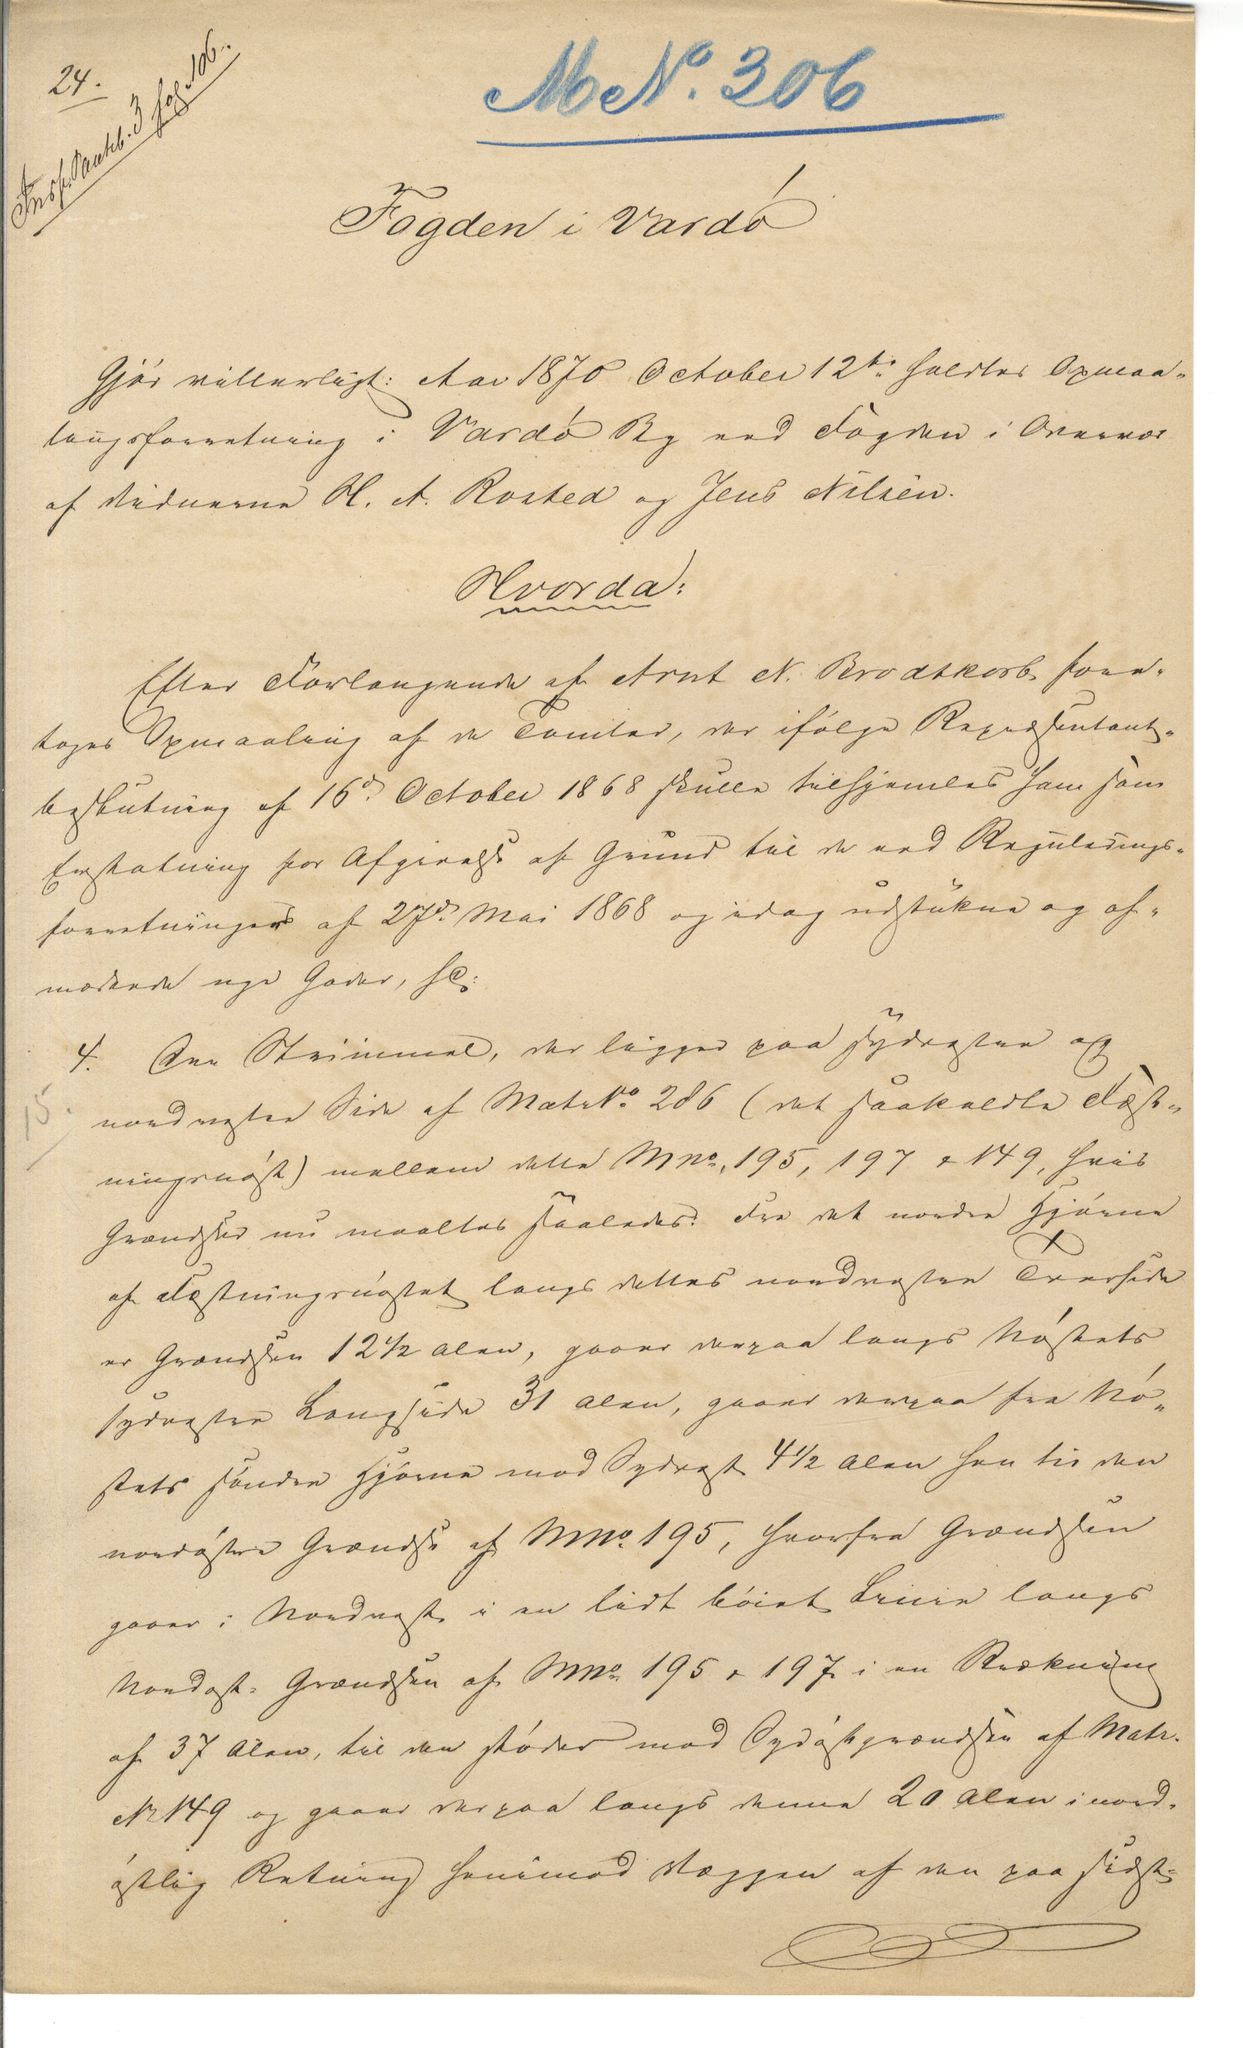 24.
Insf. Panteb. 3 fog. 106.
M No. 306
Fogden i Vardø
Gjør vitterligt: Aar 1870 October 12te holdtes Opmaa-
lingsforretning i Vardø By ved Fogden i Overvær
af Vidnerne H. A. Rosted og Jens Nilsen.
Hvorda:
Efter Forlangende af Arnt N. Brodtkorb fore-
toges Opmaaling af de Tomter, der ifølge Repræsentant-
beslutning af 16d October 1868 skulle tilhjemles ham som
Erstatning for Afgivelse af Grund til de ved Regulerings-
forretningen af 27d Mai 1868 og idag udstukne og af-
mærkede nye Gader, sc:
15.
4. Den Strimmel, der ligger paa sydvestre og
nordvestre Side af Matr No. 286 (det saakaldte Fæst-
ningsnøst) mellem dette MNo. 195, 197 & 149, hvis
Grændser nu maaltes saaledes: Fra det nordre Hjørne
af Fæstningsnøstet langs dettes nordvestre Tverside
er Grændsen 12 1/2 Alen, gaaer derpaa langs Nøstets
sydvestre Langside 31 Alen, gaaer derpaa fra Nø-
stets søndre Hjørne mod Sydvest 4 1/2 Alen hen til den
nordøstre Grændse af MNo. 195, hvorfra Grændsen
gaaer i Nordvest i en lidt bøiet Linie langs
Nordost-Grændsen af MNo 195 & 197 i en Strækning
af 37 Alen, til den støder mod Sydøstgrændsen af Matr.
No 149 og gaaer derpaa langs denne 20 Alen i nord-
østlig Retning henimod Væggen af den paa sidst-